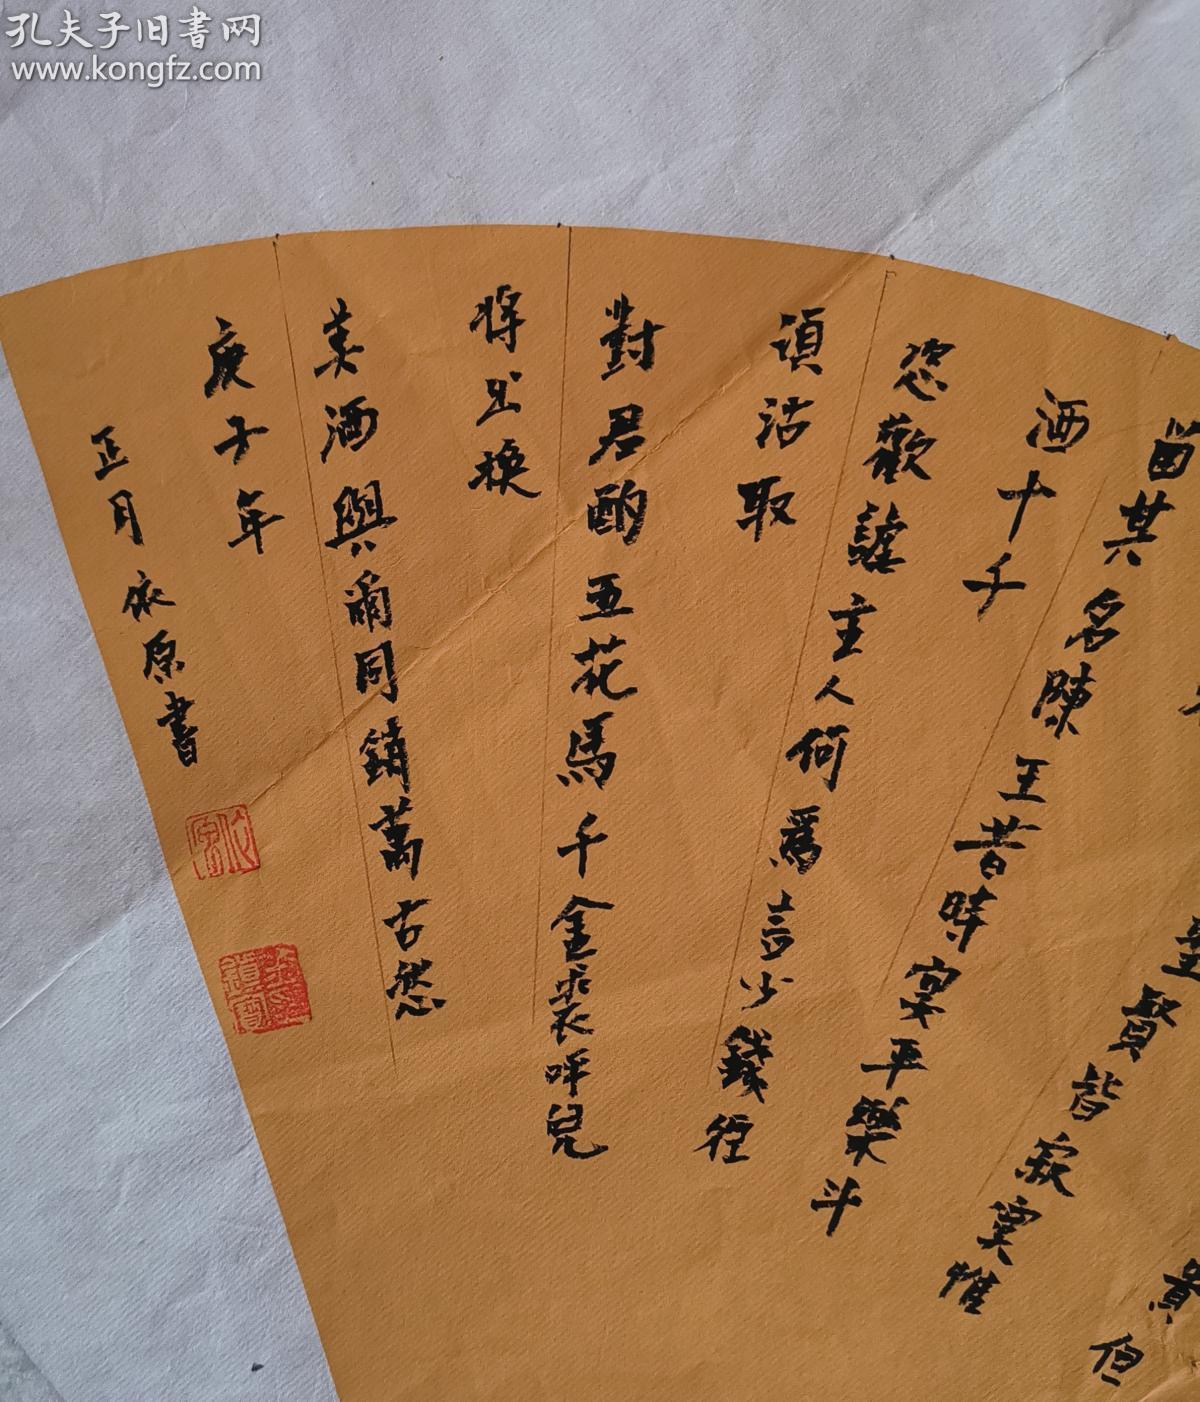 孔夫子旧書网
www.kongfz.com
貴但
聖賢皆寂寞惟
留其名陳王昔時宴平樂斗
酒十千
恣歡謔主人何爲言少錢徑
須沽取
對君酌五花馬千金裘呼兒
將出換
美酒與爾同銷萬古愁
庚子年
正月依原書